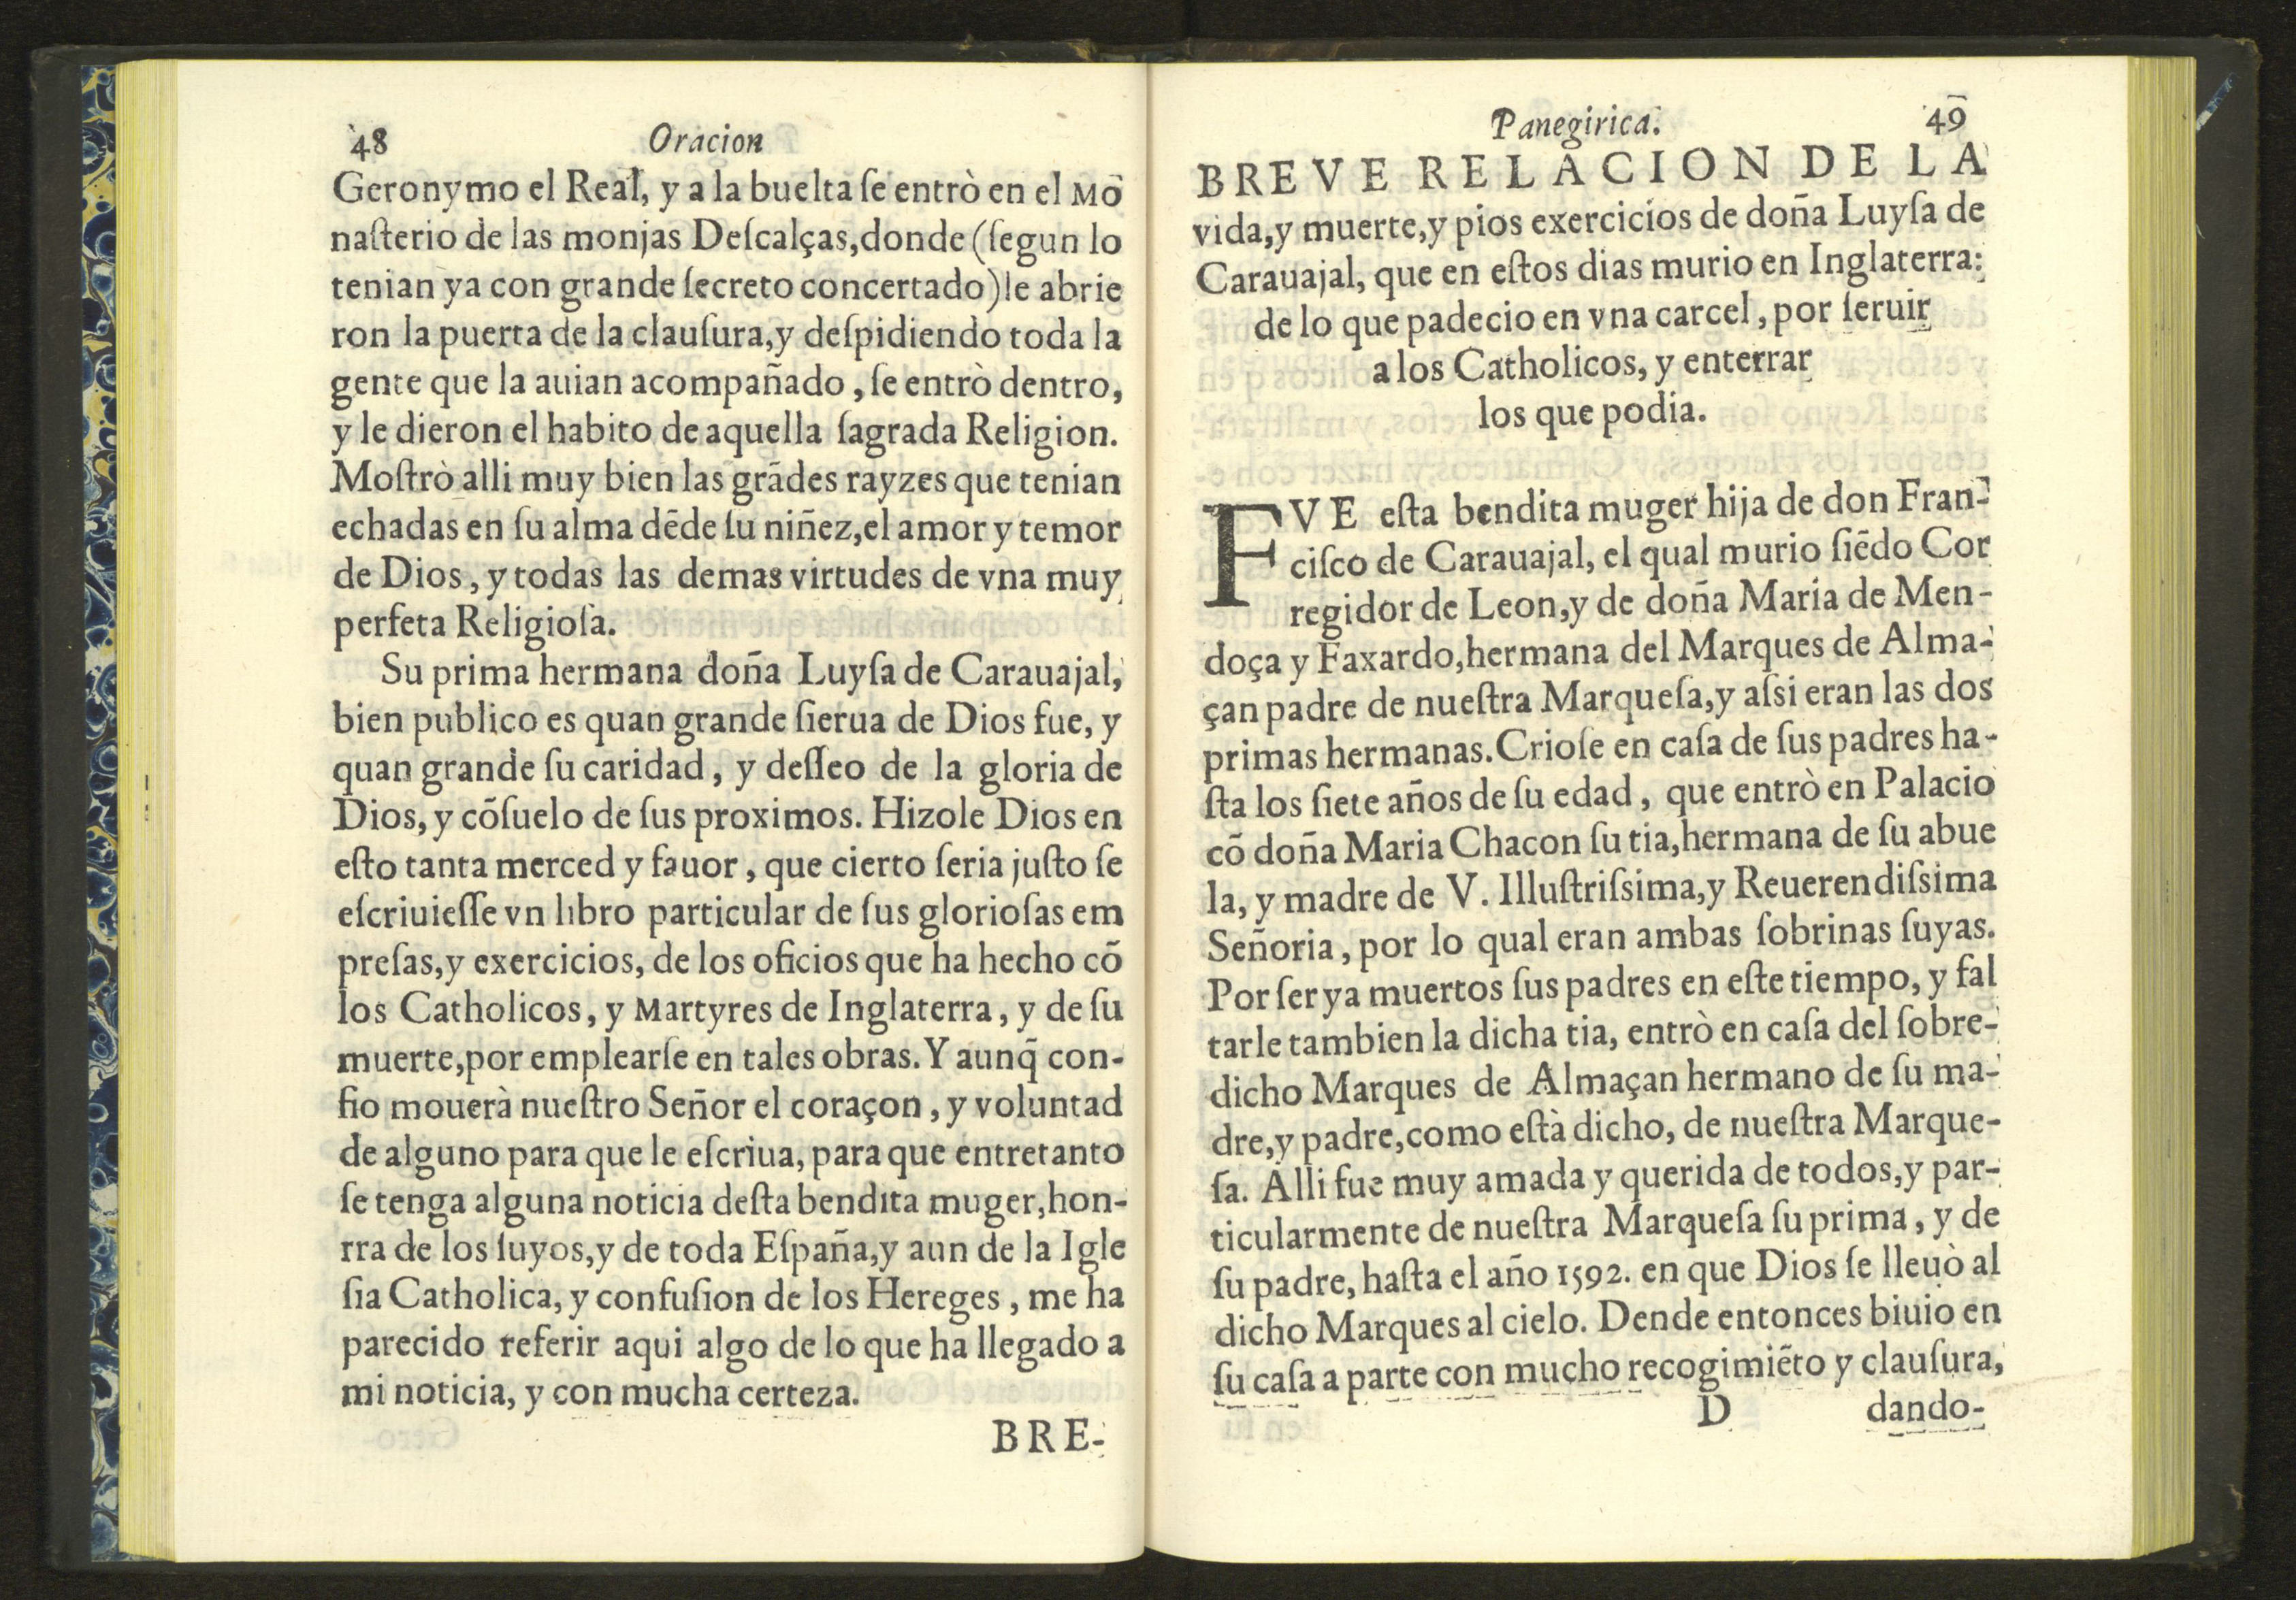 48 Oracion
Geronymo el Real, y a la buelta ſe entrò en el Mo
naſterio de las monjas Deſcalças,donde (ſegun lo
tenian ya con grande ſecreto concertado) le abrie
ron la puerta de la clauſura,y deſpidiendo toda la
gente que la auian acompañado , ſe entrò dentro,
y le dieron el habito de aquella ſagrada Religion.
Moſtrò alli muy bien las grãdes rayzes que tenian
echadas en ſu alma dẽde ſu niñez,el amor y temor
de Dios , y todas las demas virtudes de vna muy
perfeta Religioſa.
Su prima hermana doña Luyſa de Carauajal,
bien publico es quan grande ſierua de Dios fue, y
quan grande ſu caridad , y deſſeo de la gloria de
Dios, y cõſuelo de ſus proximos. Hizole Dios en
eſto tanta merced y fauor , que cierto ſeria juſto ſe
eſcriuieſſe vn libro particular de ſus glorioſas em
preſas,y exercicios, de los oficios que ha hecho cõ
los Catholicos, y Martyres de Inglaterra, y de ſu
muerte,por emplearſe en tales obras. Y aunq̃ con-
fio mouerà nueſtro Señor el coraçon , y voluntad
de alguno para que le eſcriua, para que entretanto
ſe tenga alguna noticia deſta bendita muger,hon-
rra de los ſuyos,y de toda Eſpaña,y aun de la Igle
ſia Catholica, y confuſion de los Hereges , me ha
parecido referir aqui algo de lo que ha llegado a
mi noticia, y con mucha certeza.
BRE-
Panegirica. 49
BREVE RELACION DE LA
vida,y muerte,y pios exercicios de doña Luyſa de
Carauajal, que en eſtos dias murio en Inglaterra:
de lo que padecio en vna carcel , por ſeruir
a los Catholicos, y enterrar
los que podia.
FVE eſta bendita muger hija de don Fran-
ciſco de Carauajal, el qual murio ſiẽdo Cor
regidor de Leon,y de doña Maria de Men-
doça y Faxardo,hermana del Marques de Alma-
çan padre de nueſtra Marqueſa,y aſsi eran las dos
primas hermanas. Crioſe en caſa de ſus padres ha-
ſta los ſiete años de ſu edad , que entrò en Palacio
cõ doña Maria Chacon ſu tia,hermana de ſu abue
la, y madre de V. Illuſtriſsima,y Reuerendiſsima
Señoria , por lo qual eran ambas ſobrinas ſuyas.
Por ſer ya muertos ſus padres en eſte tiempo, y fal
tarle tambien la dicha tia, entrò en caſa del ſobre-
dicho Marques de Almaçan hermano de ſu ma-
dre,y padre,como eſtà dicho, de nueſtra Marque-
ſa. Alli fue muy amada y querida de todos,y par-
ticularmente de nueſtra Marqueſa ſu prima , y de
ſu padre, haſta el año 1592. en que Dios ſe lleuò al
dicho Marques al cielo. Dende entonces biuio en
ſu caſa a parte con mucho recogimiẽto y clauſura,
D dando-